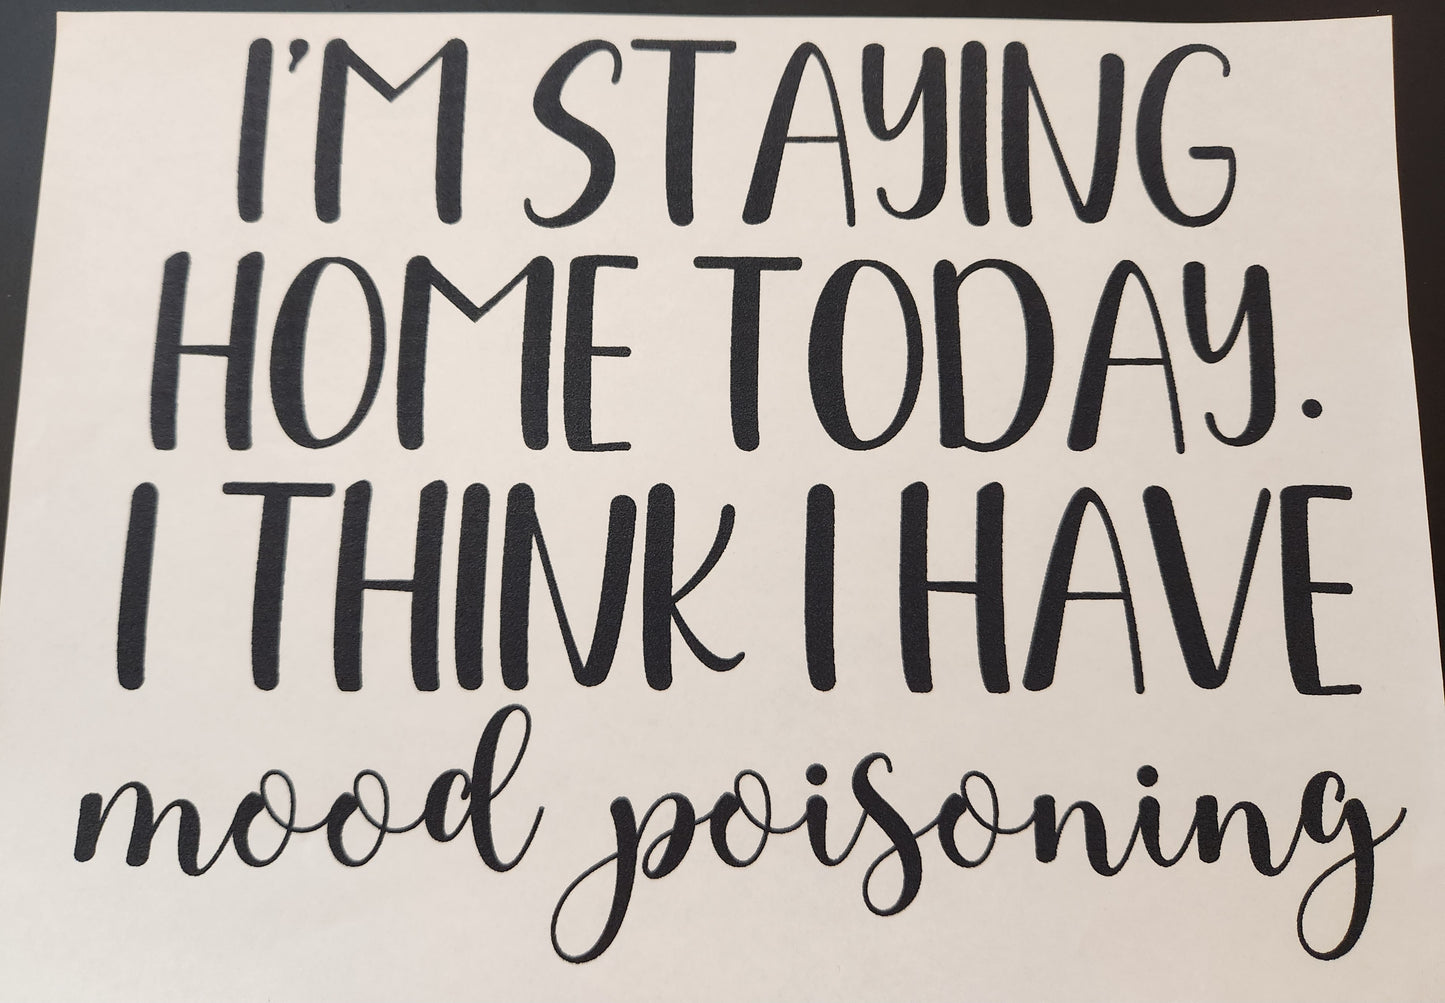 I'M STAYING
HOME TODAY.
I THINK I HAVE
mood poisoning